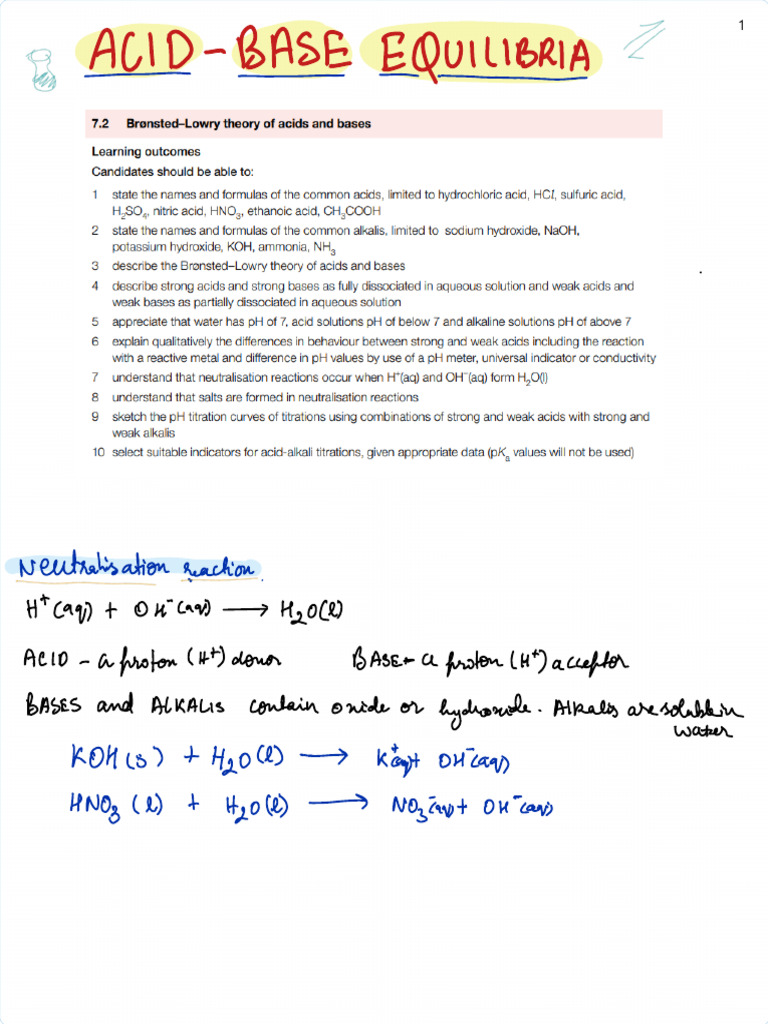 1
ACID-BASE EQUILIBRIA
7.2 Brønsted–Lowry theory of acids and bases
Learning outcomes
Candidates should be able to:
1 state the names and formulas of the common acids, limited to hydrochloric acid, HCl, sulfuric acid,
H₂SO₄, nitric acid, HNO₃, ethanoic acid, CH₃COOH
2 state the names and formulas of the common alkalis, limited to sodium hydroxide, NaOH,
potassium hydroxide, KOH, ammonia, NH₃
3 describe the Brønsted–Lowry theory of acids and bases
4 describe strong acids and strong bases as fully dissociated in aqueous solution and weak acids and
weak bases as partially dissociated in aqueous solution
5 appreciate that water has pH of 7, acid solutions pH of below 7 and alkaline solutions pH of above 7
6 explain qualitatively the differences in behaviour between strong and weak acids including the reaction
with a reactive metal and difference in pH values by use of a pH meter, universal indicator or conductivity
7 understand that neutralisation reactions occur when H⁺(aq) and OH⁻(aq) form H₂O(l)
8 understand that salts are formed in neutralisation reactions
9 sketch the pH titration curves of titrations using combinations of strong and weak acids with strong and
weak alkalis
10 select suitable indicators for acid-alkali titrations, given appropriate data (pKₐ values will not be used)
Neutralisation reaction.
H⁺(aq) + OH⁻(aq) → H₂O(l)
ACID – a proton (H⁺) donor BASE – a proton (H⁺) acceptor
BASES and ALKALIS contain oxide or hydroxide. Alkalis are soluble in
water
KOH(s) + H₂O(l) → K⁺(aq) + OH⁻(aq)
HNO₃(l) + H₂O(l) → NO₃⁻(aq) + OH⁻(aq)